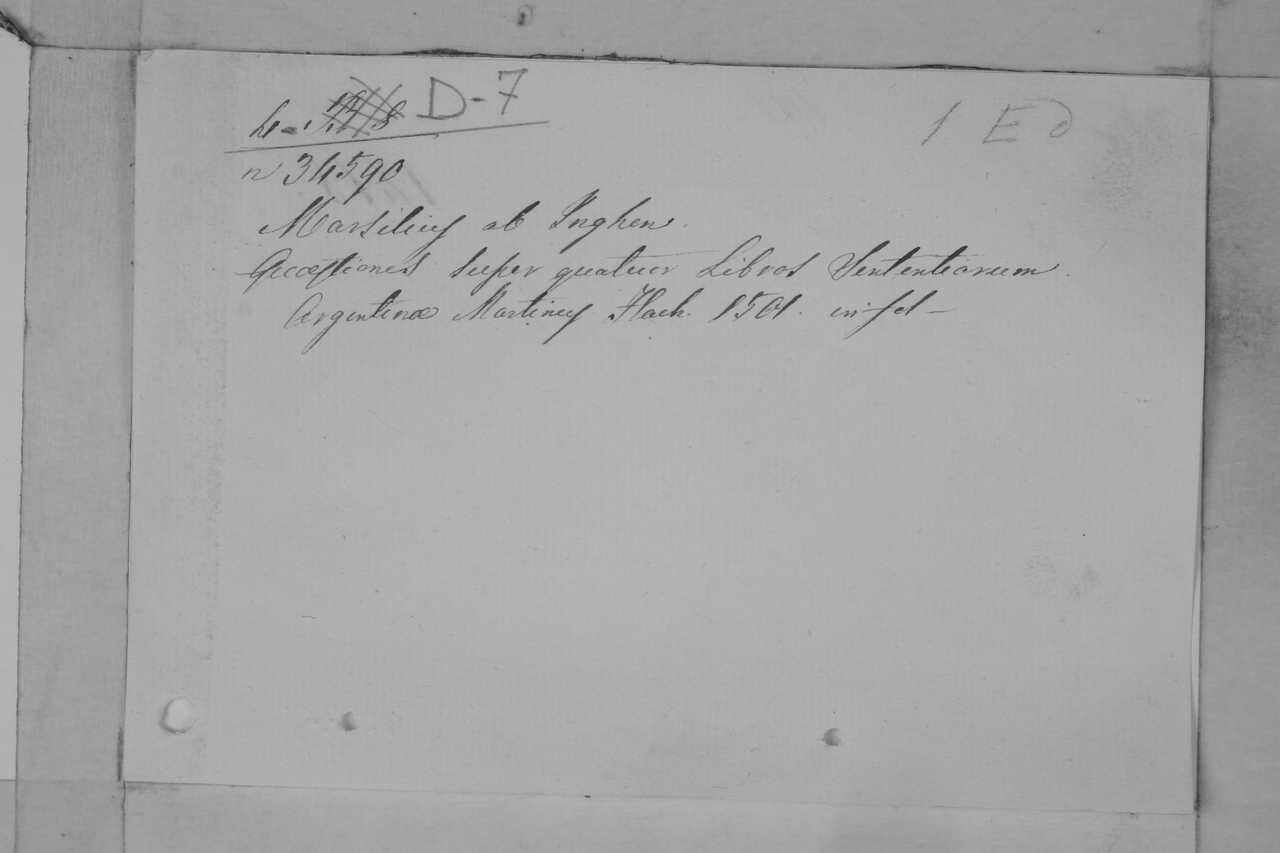 D-7
1 E d
n 34590
Marsilius ab Inghen.
Quæstiones super quatuor Libros Sententiarum.
Argentinæ Martinus Flach. 1501. in-fol-